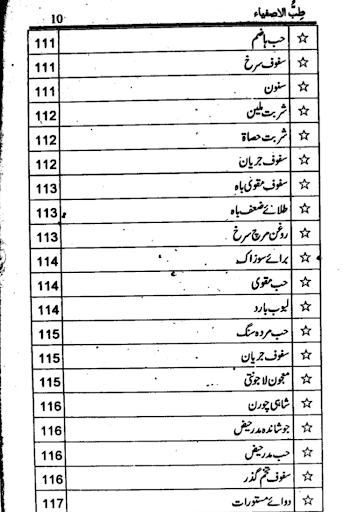 طِبُّ الاصفیاء 10
☆ حب ہاضم 111
☆ سفوف سرخ 111
☆ سنون 111
☆ شربت ملین 112
☆ شربت حصاۃ 112
☆ سفوف جریان 112
☆ سفوف مقوی باہ 113
☆ طلائے ضعف باہ 113
☆ روغن مرچ سرخ 113
☆ برائے سوزاک 114
☆ حب مقوی 114
☆ لبوب بارد 114
☆ حب مردہ سنگ 115
☆ سفوف جریان 115
☆ معجون لاجونتی 115
☆ شاہی چورن 116
☆ جوشاندہ مدر حیض 116
☆ حب مدر حیض 116
☆ سفوف تخم گذر 116
☆ دوائے مستورات 117